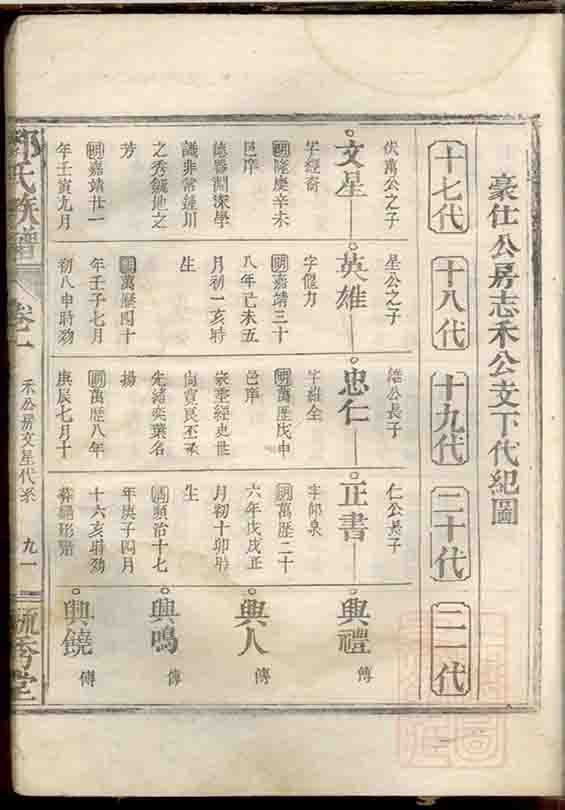 豪仕公房志禾公支下代紀圖
十七代
十八代
十九代
二十代
二一代
伏萬公之子
文星
字經奇
明隆慶辛未
邑庠
德器淵深學
識非常鍾川
之秀毓地之
芳
明嘉靖廿一
年壬寅九月
星公之子
英雄
字催力
明嘉靖三十
八年己未五
月初一亥時
生
明萬歷四十
年壬子七月
初八申時歿
公長子
忠仁
字維全
明萬歷戊申
邑庠
家業經史世
尚賢良丕承
先緒奕葉名
揚
明萬歷八年
庚辰七月十
仁公長子
正書
字郁泉
明萬歷二十
六年戊戌正
月初十卯時
生
清順治十七
年庚子四月
十六亥時歿
葬 形
興禮 傳
興人 傳
興鳴 傳
興鐃 傳
氏族譜
卷一
禾公房文星代系
九一
毓秀堂